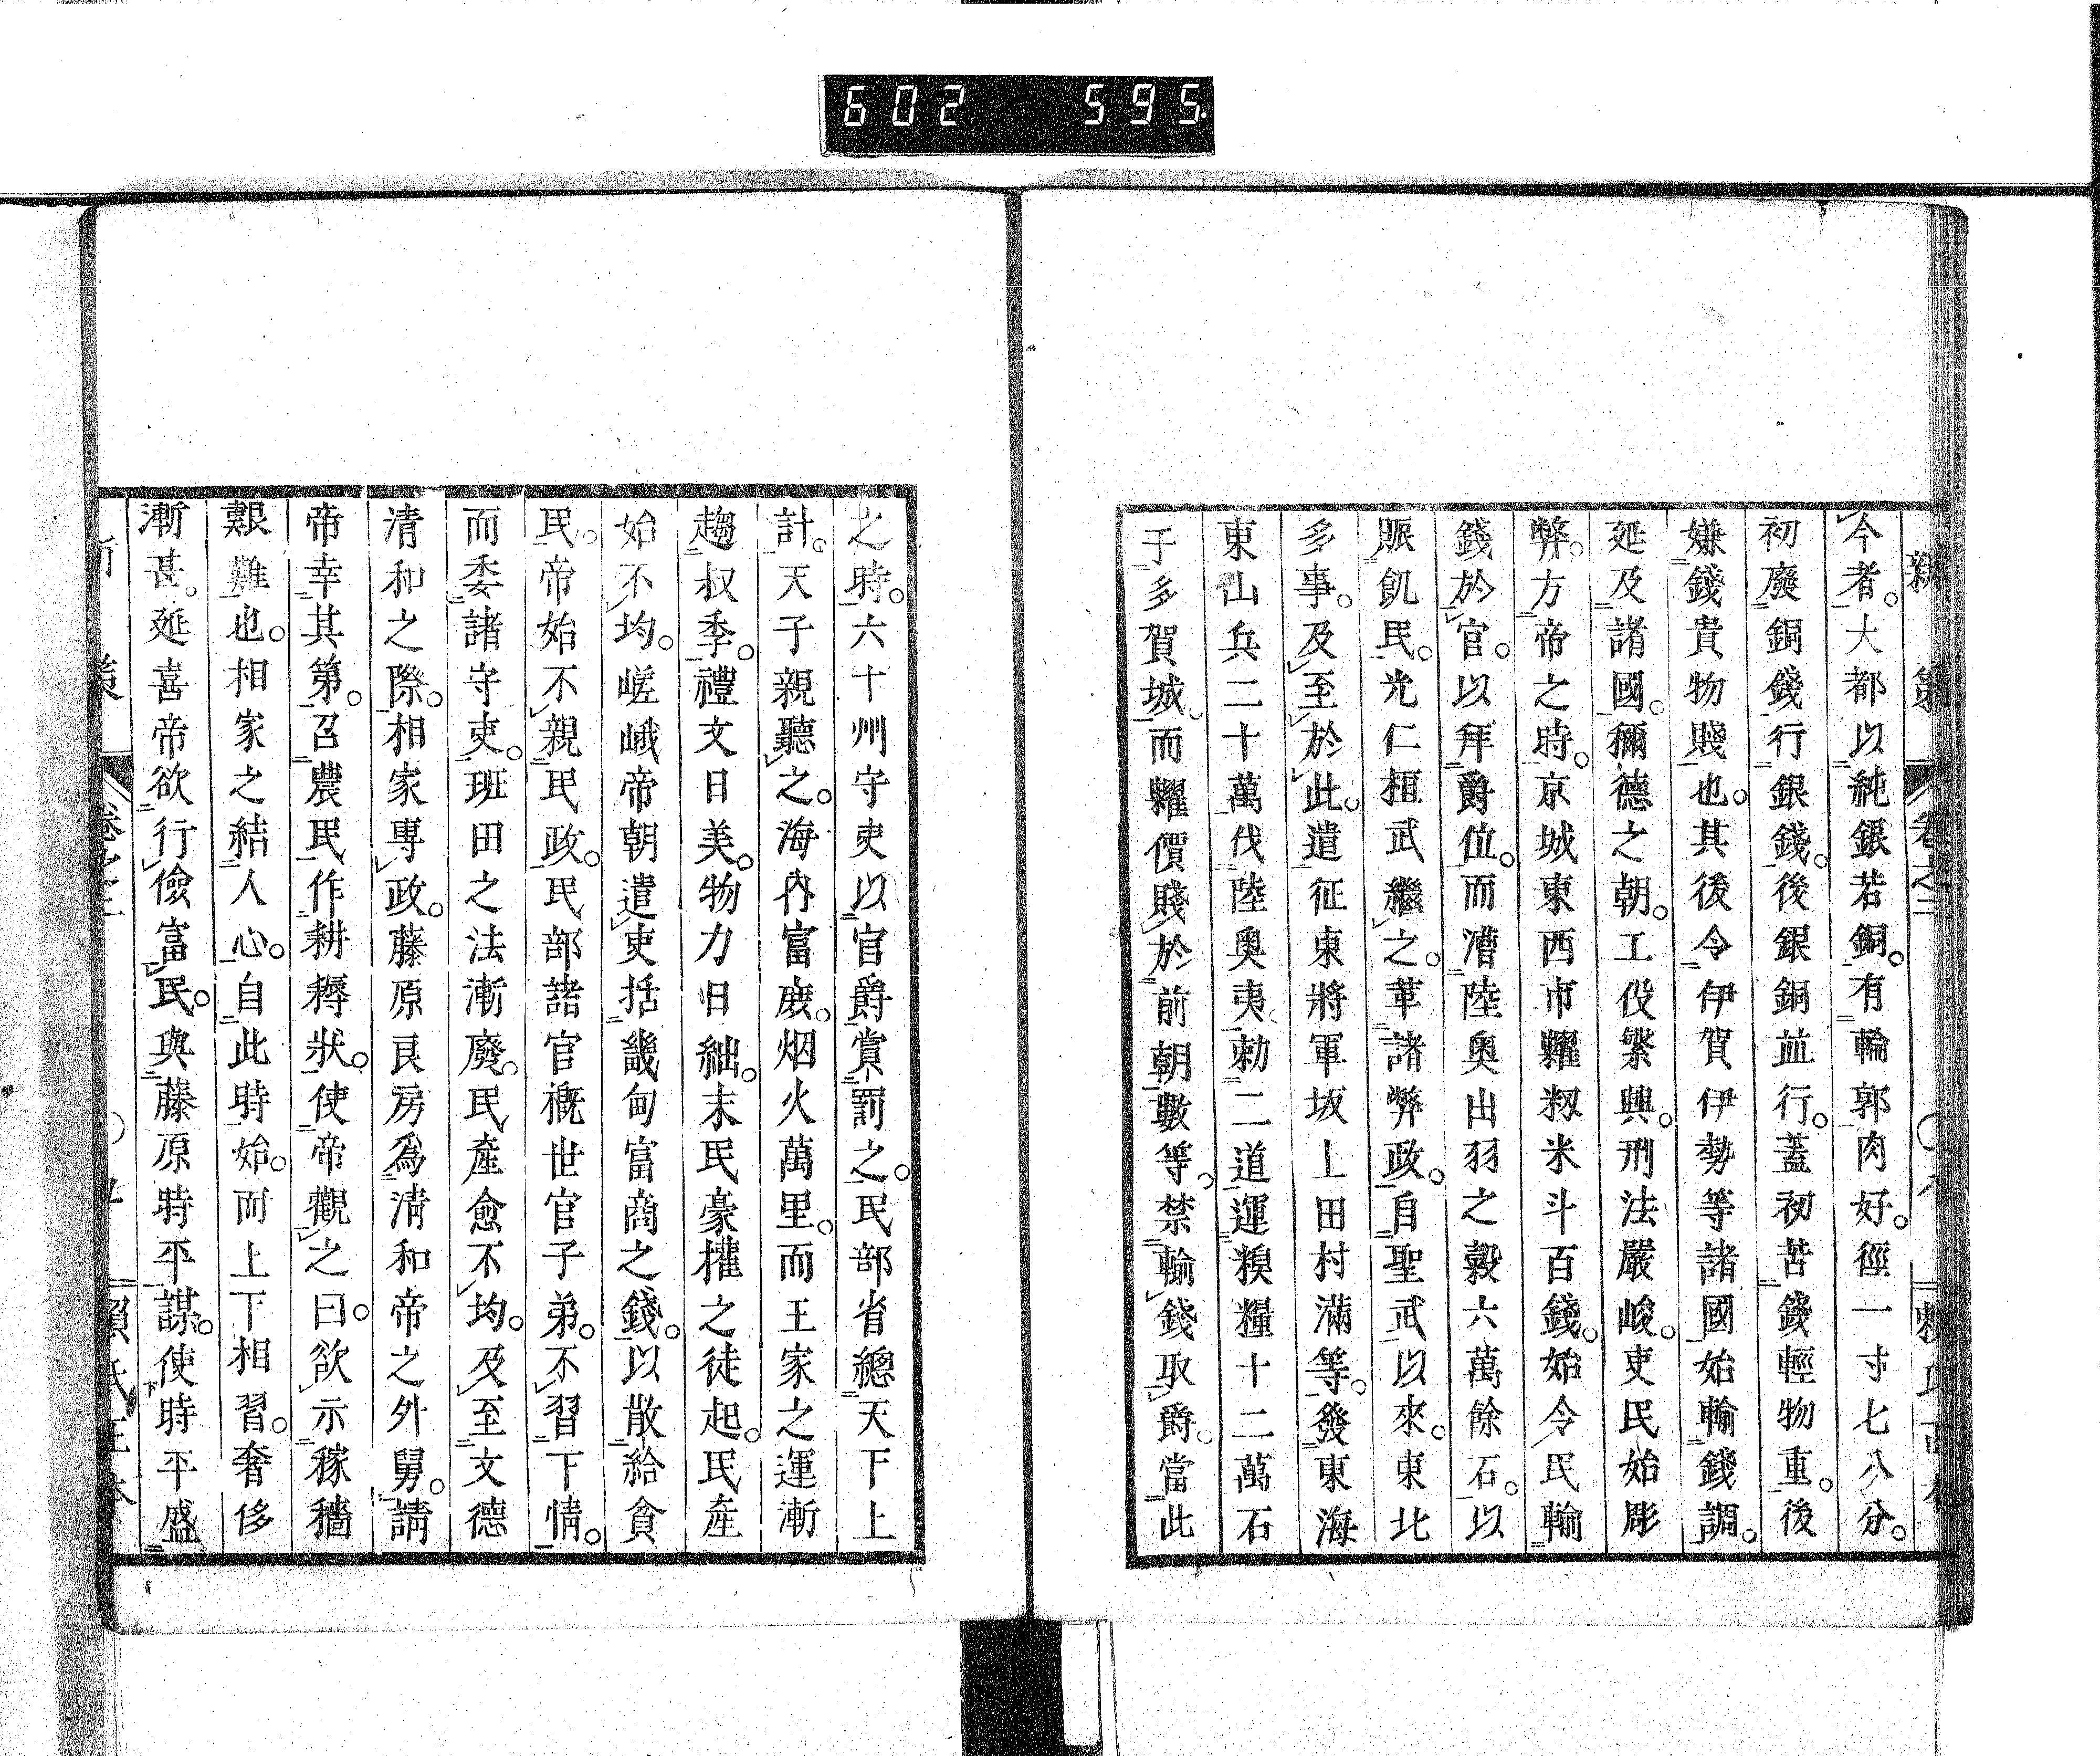 602 595
新策 卷之二
今者。大都以純銀若銅。有輪郭肉好。徑一寸七八分。
初廢銅錢行銀錢。後銀銅並行。蓋初苦錢輕物重。後
嫌錢貴物賤也。其後令伊賀伊勢等諸國始輸錢調。
延及諸國。稱德之朝。工伇繁興。刑法嚴峻。吏民始彫
弊。方帝之時。京城東西市糶籾米斗百錢。始令民輸
錢於官。以拜爵位。而漕陸奧出羽之穀六萬餘石。以
賑飢民。光仁桓武繼之。革諸弊政。自聖武以來。東北
多事。及至於此。遣征東將軍坂上田村滿等。發東海
東山兵二十萬伐陸奧夷。勅二道運糗糧十二萬石
于多賀城。而糶價賤於前朝數等。禁輸錢取爵。當此
之時。六十州守吏以官爵賞罰之。民部省總天下上
計。天子親聽之。海內富庶。烟火萬里。而王家之運漸
趨叔季。禮文日美。物力日絀。末民豪攉之徒起。民產
始不均。嵯峨帝朝遣吏括畿甸富商之錢。以散給貧
民。帝始不親民政。民部諸官概世官子弟。不習下情。
而委諸守吏。班田之法漸廢。民產愈不均。及至文德
清和之際。相家專政。藤原良房爲清和帝之外舅。請
帝幸其第。召農民作耕耨狀。使帝觀之。曰。欲示稼穡
艱難也。相家之結人心。自此時始。而上下相習。奢侈
漸甚。延喜帝欲行儉富民。與藤原時平謀。使時平盛